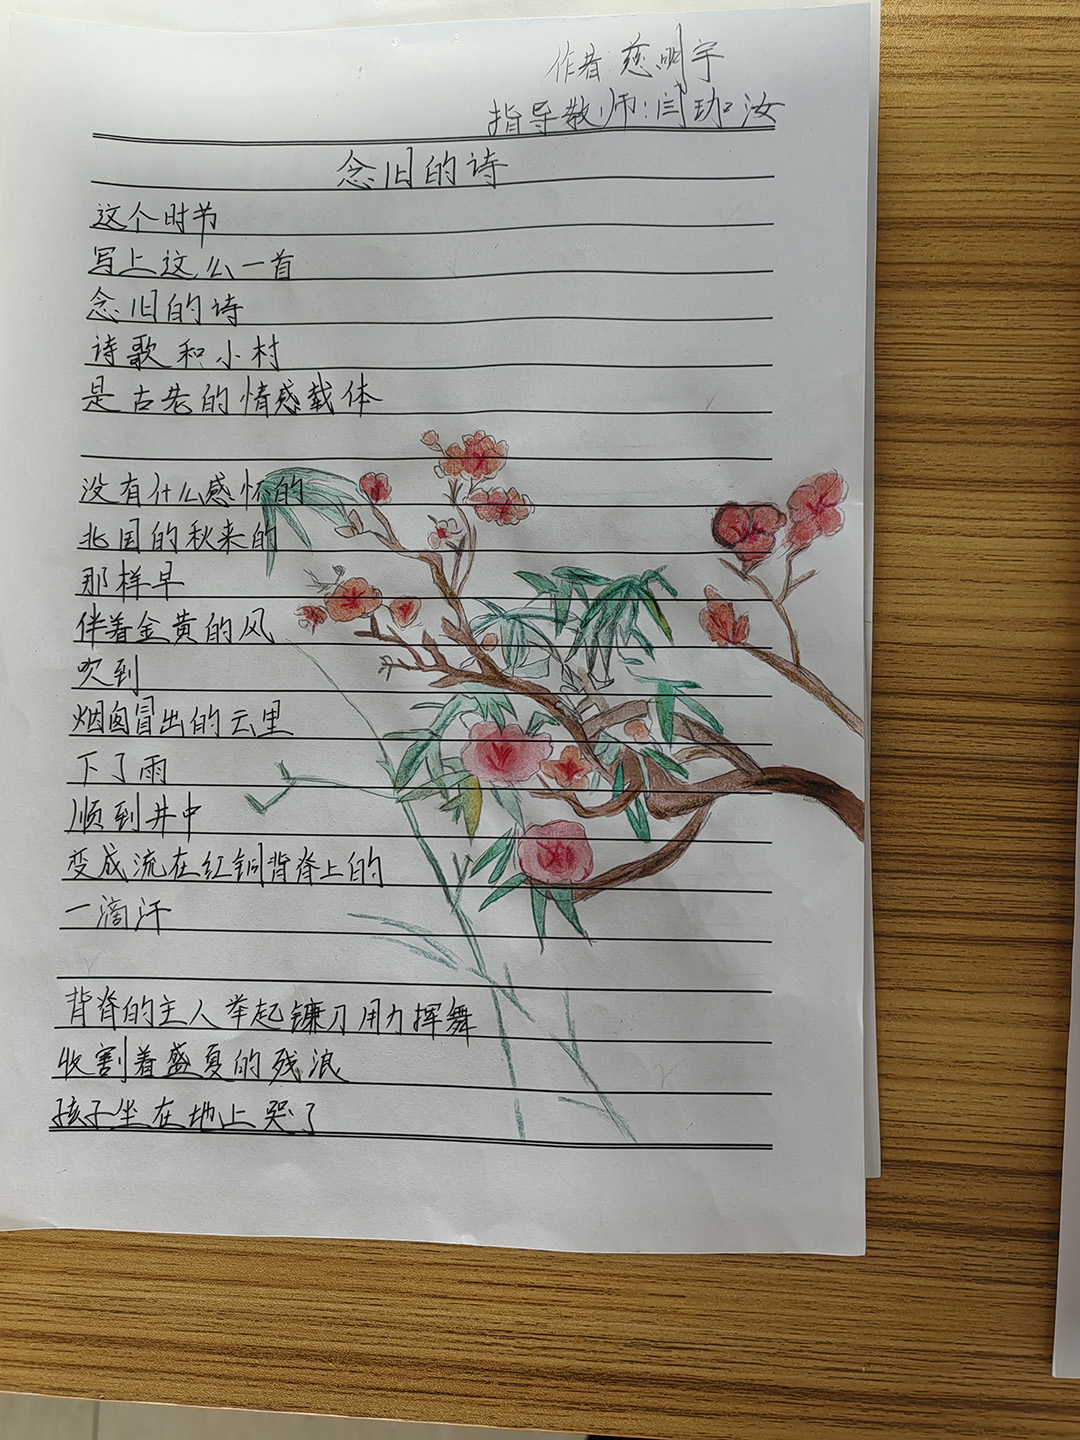 作者:慈明宇
指导教师:闫珈汝
念旧的诗
这个时节
写上这么一首
念旧的诗
诗歌和小村
是古老的情感载体
没有什么感怀的
北国的秋来的
那样早
伴着金黄的风
吹到
烟囱冒出的云里
下了雨
顺到井中
变成流在红铜背脊上的
一滴汗
背脊的主人举起镰刀用力挥舞
收割着盛夏的残浪
孩子坐在地上哭了